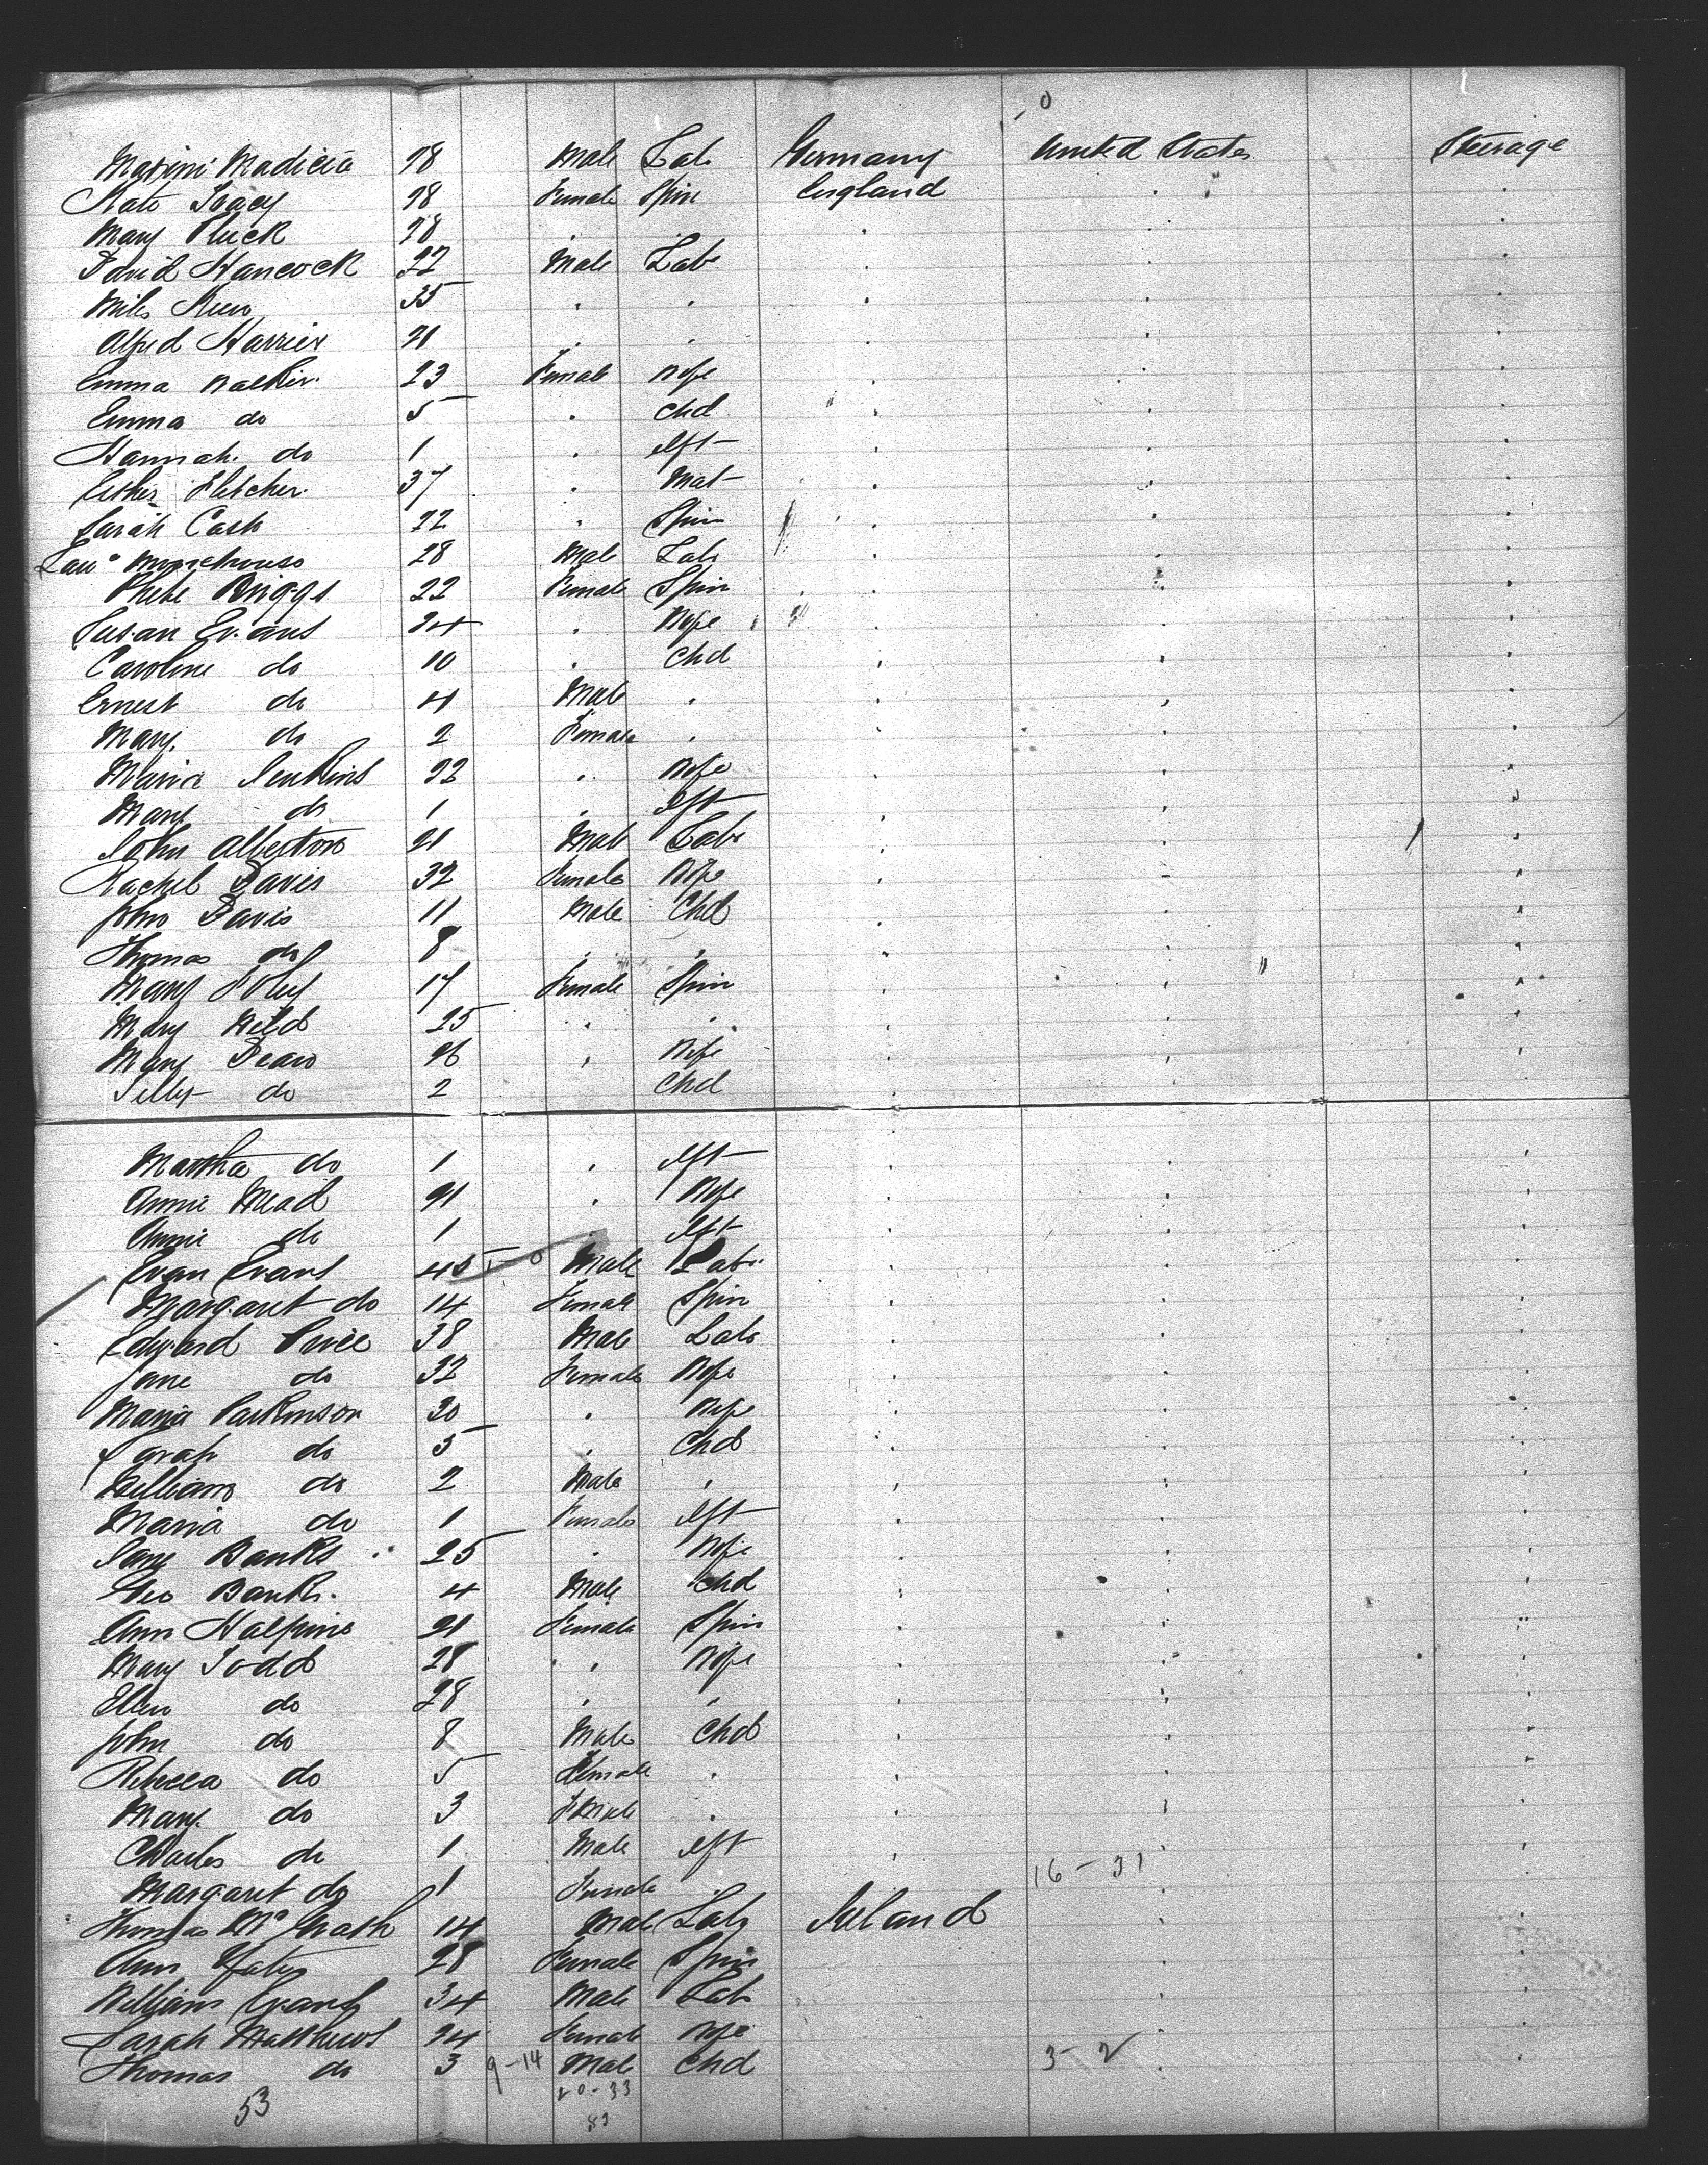 0
Male Lab Germany United States Steerage
Kate 28 Female Spin England
Mary Pluck 28
David Hancock 22 Male Lab
35
Alfred 21
Emma Walker 23 Female Wife
Emma do 5 Chd
Hannah do 1 Ift
Esther Fletcher 37 Mat
Sarah Cash 22 Spin
28 Male Lab
Phebe Briggs 22 Female Spin
Susan Evans 24 Wife
Caroline do 10 Chd
Ernest do 4 Male
Mary do 2 Female
Maria Jenkins 22 Wife
Mary do 1 Ift
John Alberton 21 Male Lab
Rachel Davis 32 Female Wife
John Davis 11 Male Chd
Thomas do 8
Mary Foley 17 Female Spin
Mary Wild 25
Mary Dean 26 Wife
do 2 Chd
Martha do 1 Ift
Annie Mead 21 Wife
Annie do 1 Ift
Evan Evans 45 Male Lab
Margaret do 14 Female Spin
Edward Price 38 Male Lab
Jane do 32 Female Wife
Maria Parkinson 30 Wife
Sarah do 5 Chd
William do 2 Male
Maria do 1 Female Ift
Jane Banks 25 Wife
Geo Banks 4 Male Chd
Ann Halpine 21 Female Spin
Mary Todd 28 Wife
Ellen do 28
John do 8 Male Chd
Rebecca do 5 Female
Mary do 3 Female
Charles do 1 Male Ift
Margaret do 1 Female 16 - 31
Thomas McGrath 14 Male Lab Ireland
Ann Yates 28 Female Spin
William Evans 34 Male Lab
Sarah Matthews 24 Female Wife
Thomas do 3 9-14 Male Chd 3 - 2
53 20-33